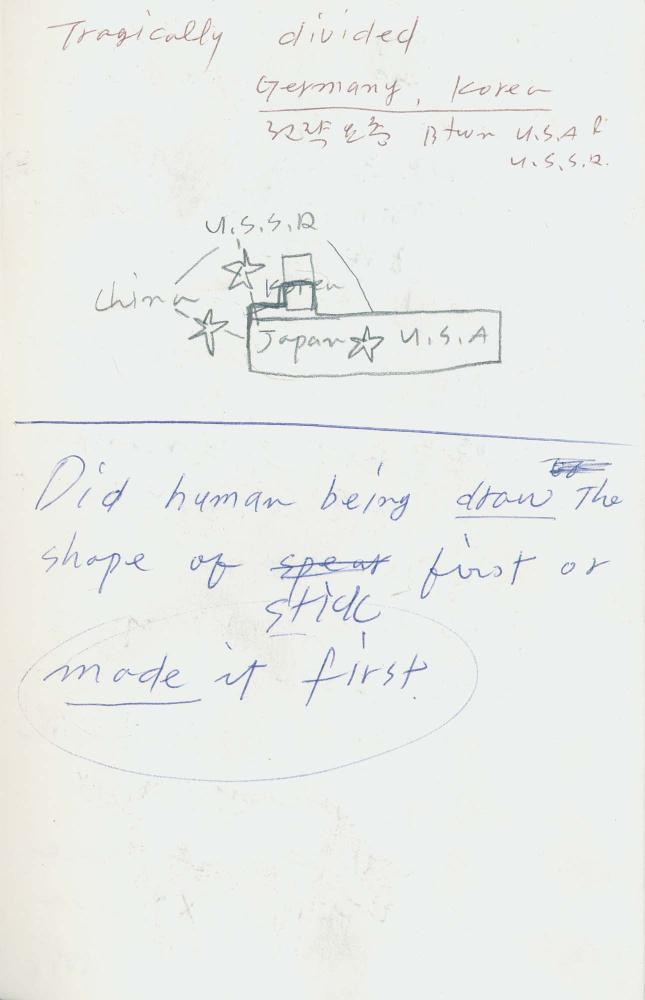 Tragically divided
Germany, Korea
Btwn U.S.A &
U.S.S.R.
U.S.S.R
China
Korea
Japan U.S.A
Did human being draw The
shape of spear first or
stick
made it first